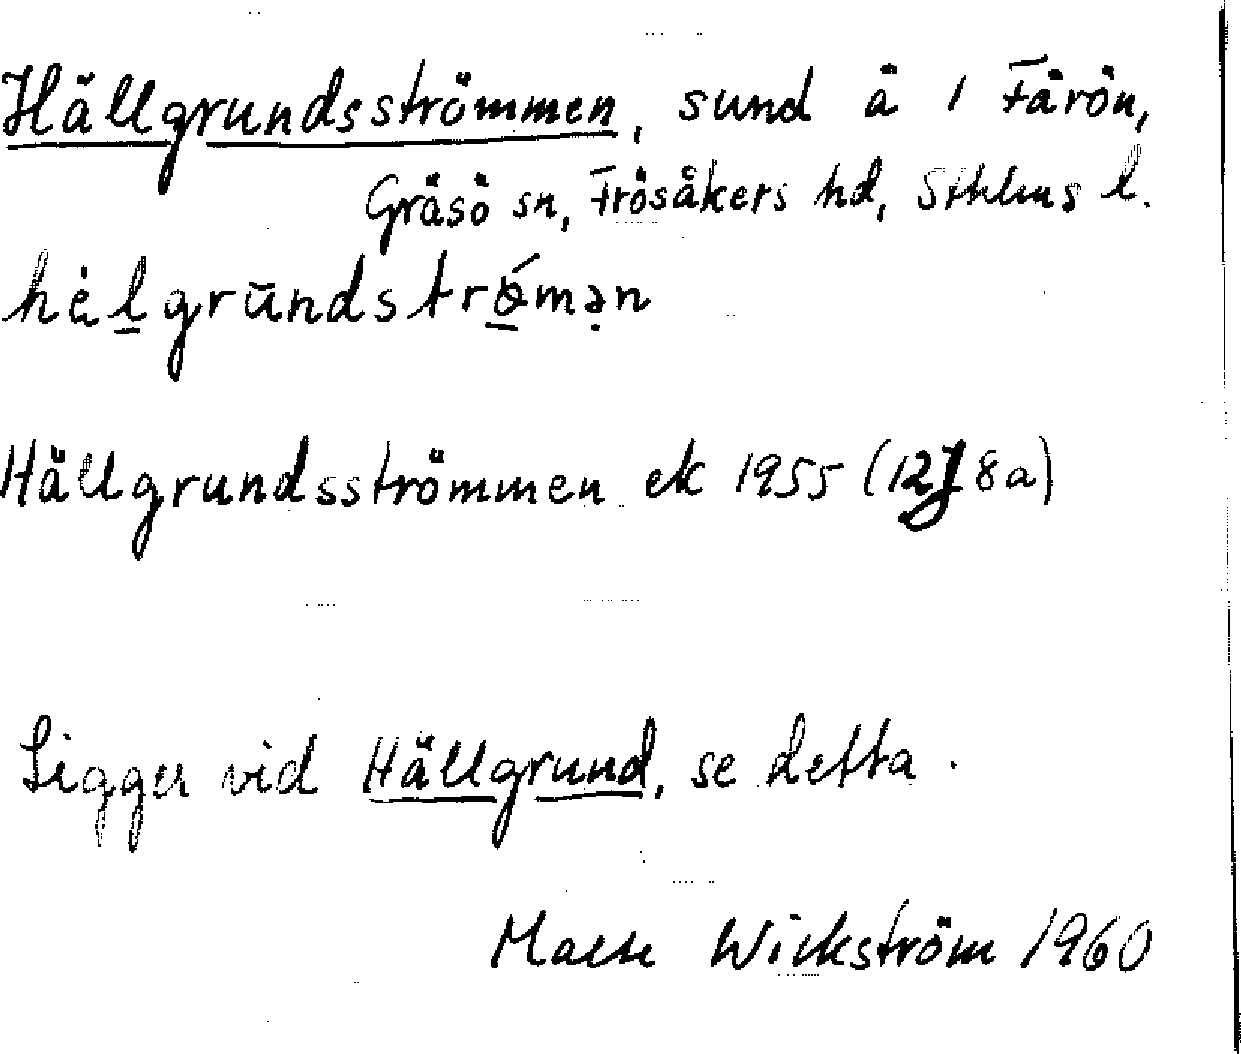 Hällgrundsströmmen, sund å 1 Färön,
Gräsö sn, Frösåkers hd, Sthlms l.
hèlgrūndstrǿmən
Hällgrundsströmmen ek 1955 (12J8a)
Ligger vid Hällgrund, se detta.
Wickström 1960